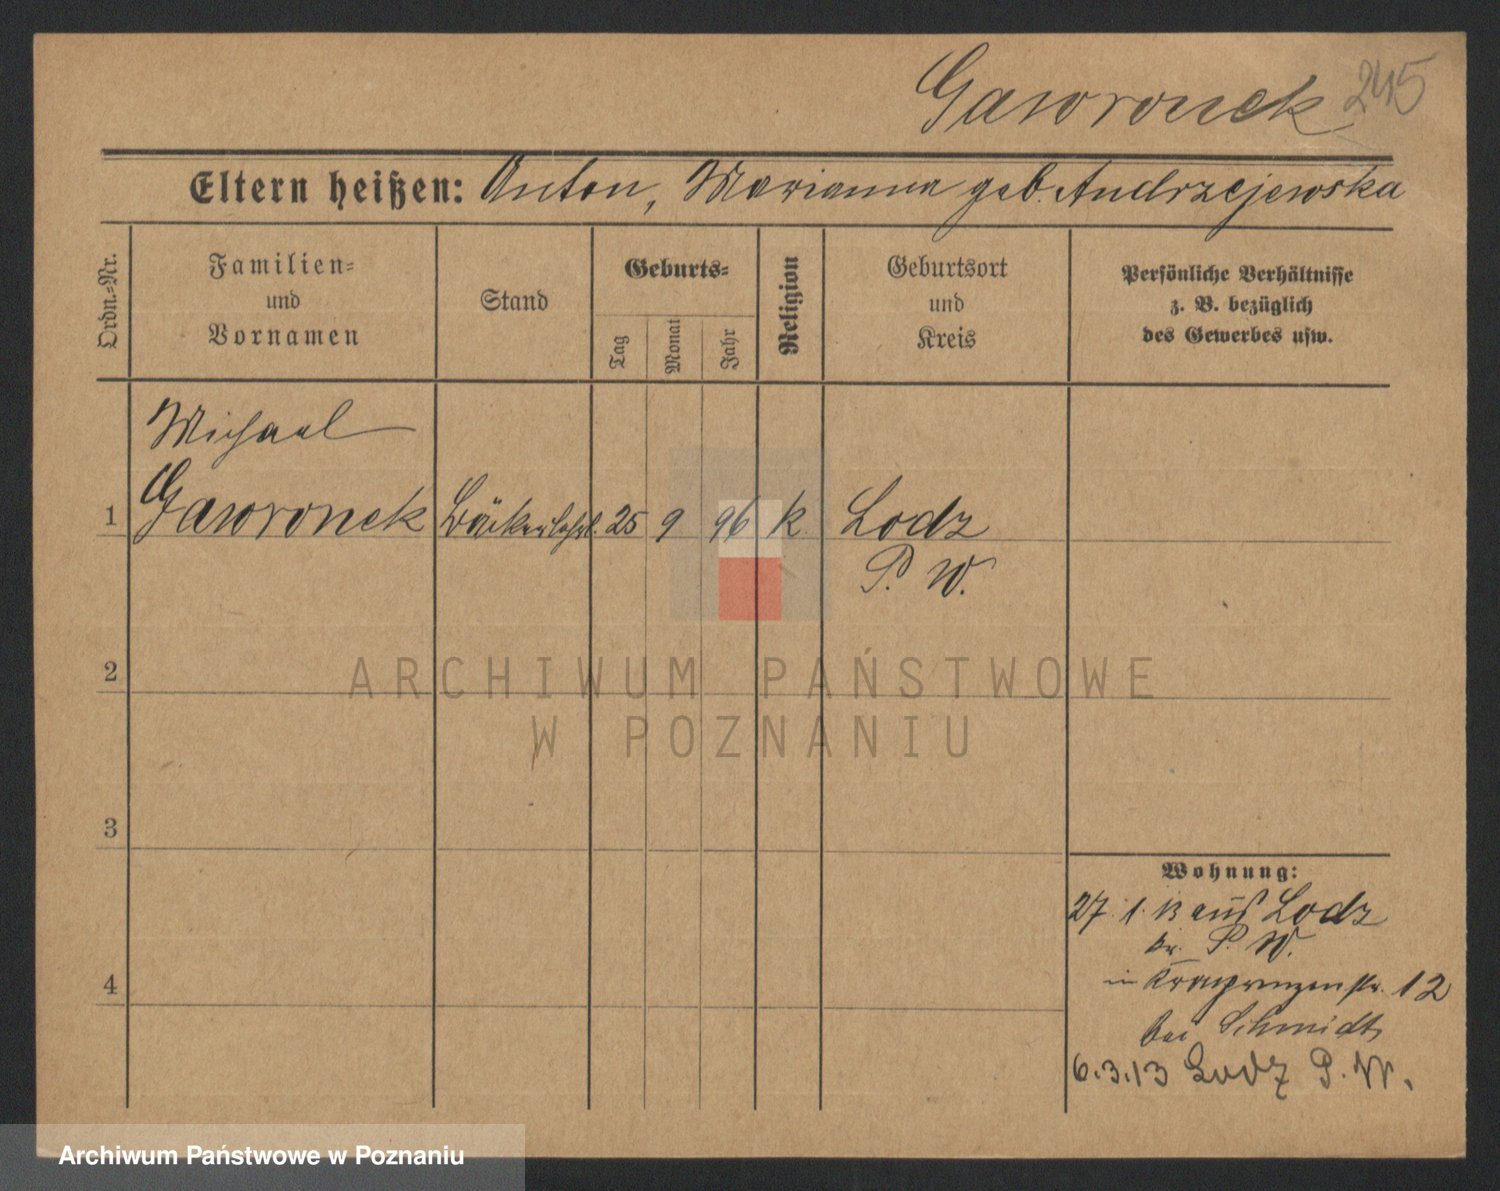 Gaworonek 245
Eltern heißen: Anton, Marianna geb. Andrzejewska
Ordn.-Nr.
Familien-
und
Vornamen
Stand
Geburts-
Tag
Monat
Jahr
Religion
Geburtsort
und
Kreis
Persönliche Verhältnisse
z. B. bezüglich
des Gewerbes usw.
Michael
1 Gaworonek Bäckerlehrl. 25 9 96 k Lodz
P. W.
2
3
4
Wohnung:
27. 1. 13 aus Lodz
Kr. P. W.
in Kronprinzenstr. 12
bei Schmidt
6.3.13 Lodz P. W.
ARCHIWUM PAŃSTWOWE
W POZNANIU
Archiwum Państwowe w Poznaniu